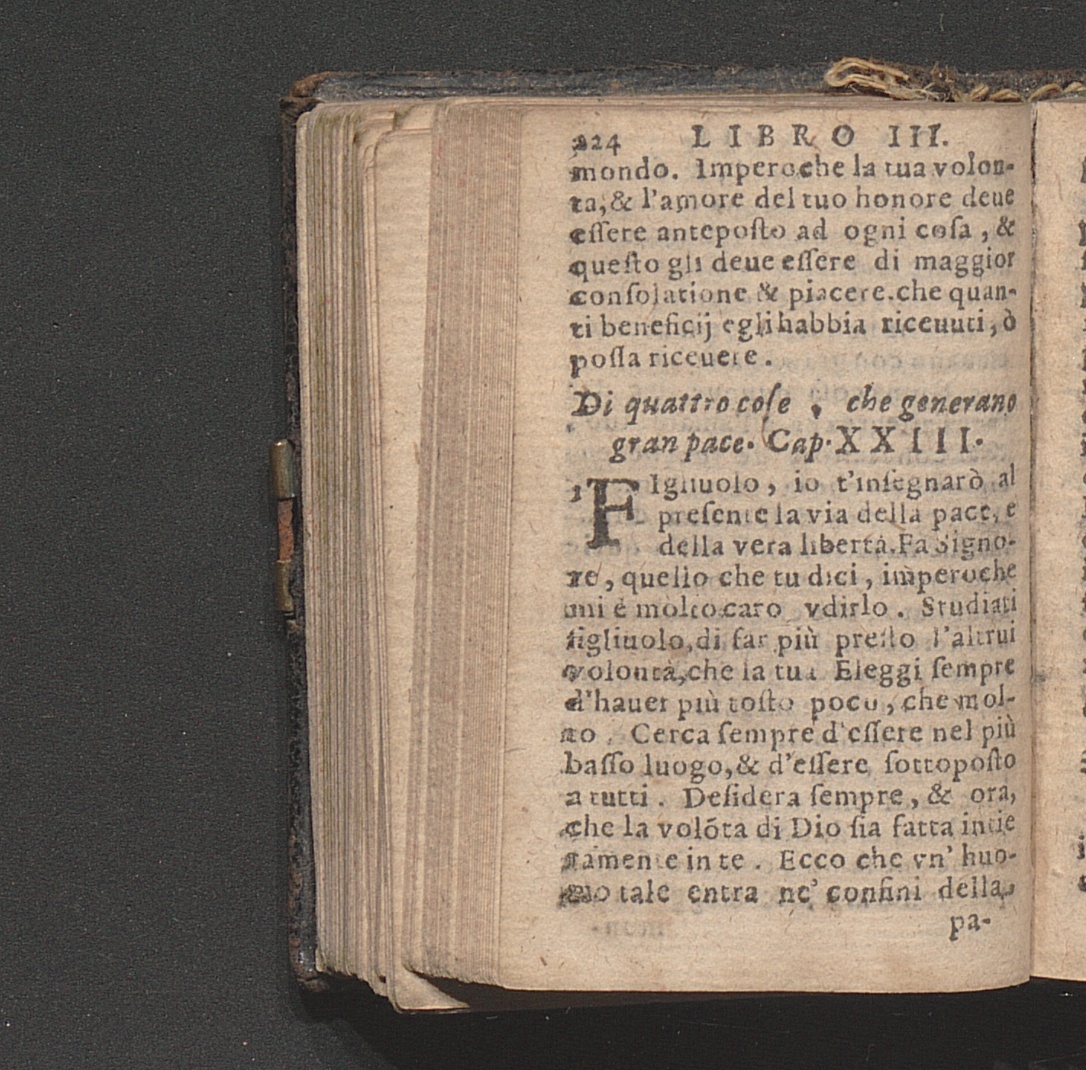 224 LIBRO III.
mondo. Imperoche la tua volon-
ta, & l'amore del tuo honore deue
eſſere antepoſto ad ogni coſa, &
queſto gli deue eſſere di maggior
conſolatione & piacere. che quan-
ti beneficij egli habbia riceuuti, ò
poſſa riceuere.
Di quattro coſe, che generano
gran pace. Cap. XXIII.
1 FIgliuolo, io t'inſegnarò al
preſente la via della pace, e
della vera libertà. Fa Signo-
re, quello che tu dici, imperoche
mi è molto caro vdirlo. Studiati
figliuolo, di far più preſto l'altrui
volontà, che la tua Eleggi ſempre
d'hauer più toſto poco, che mol-
to. Cerca ſempre d'eſſere nel più
baſſo luogo, & d'eſſere ſottopoſto
a tutti. Deſidera ſempre, & ora,
che la volóta di Dio ſia fatta intie
ramente in te. Ecco che vn' huo-
mo tale entra ne' confini della
pa-